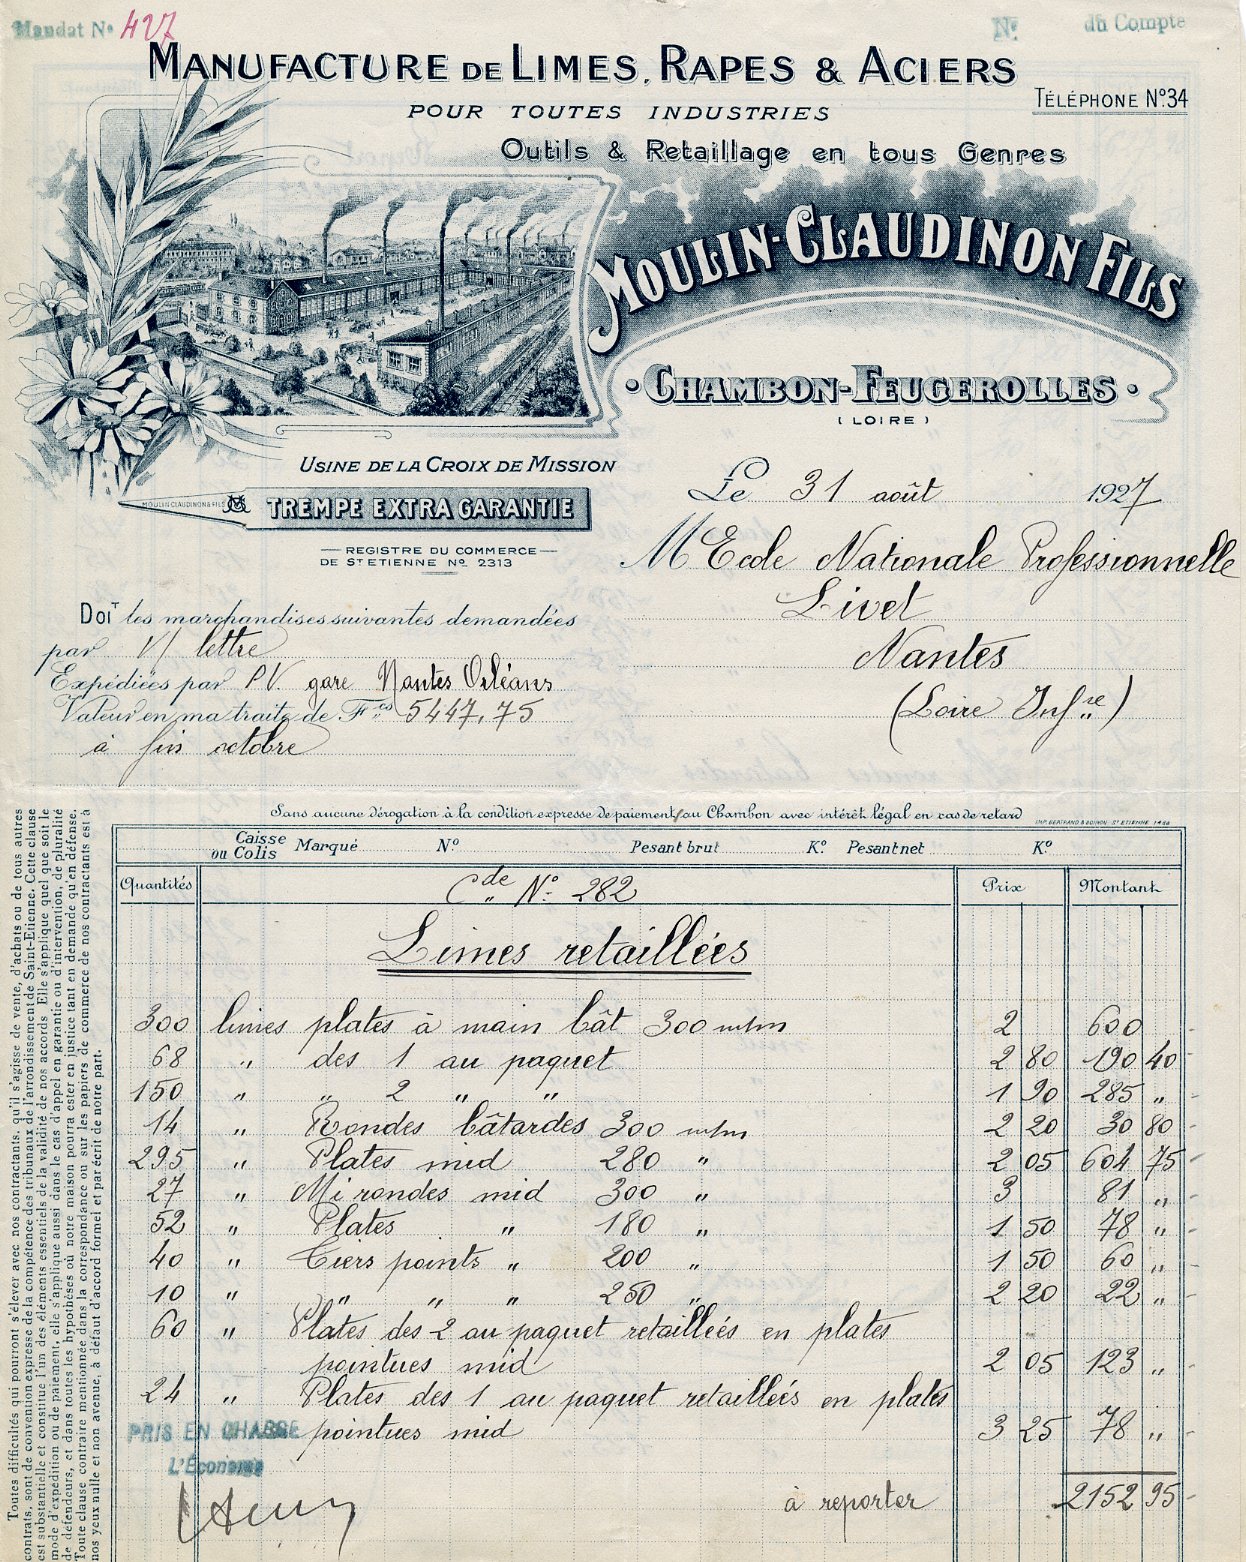 Mandat No 427
No du Compte
MANUFACTURE DE LIMES, RAPES & ACIERS
POUR TOUTES INDUSTRIES
TÉLÉPHONE No.34
Outils & Retaillage en tous Genres
MOULIN-CLAUDINON FILS
• CHAMBON-FEUGEROLLES •
(LOIRE)
USINE DE LA CROIX DE MISSION
MOULIN CLAUDINON & FILS
TREMPE EXTRA GARANTIE
REGISTRE DU COMMERCE
DE ST ETIENNE No. 2313
Le 31 août 1927
M Ecole Nationale Professionnelle
Livet
Nantes
(Loire Infre)
DoiT les marchandises suivantes demandées
par V/ lettre
Expédiées par P.V. gare Nantes Orléans
Valeur en ma traite de Fcs 5447,75
à fin octobre
Sans aucune dérogation à la condition expresse de paiement au Chambon avec intérêt légal en cas de retard
IMP. BERTRAND & DOIHON - ST ETIENNE 1486
Toutes difficultés qui pourront s'élever avec nos contractants, qu'il s'agisse de vente, d'achats ou de tous autres
contrats, sont de convention expresse de la compétence des tribunaux de l'arrondissement de Saint-Etienne. Cette clause
est substantielle et constitue l'un des éléments essentiels de la validité de nos accords. Elle s'applique quel que soit le
mode d'expédition ou de paiement, elle s'applique aussi dans le cas d'appel en garantie ou d'intervention, de pluralité
de défendeurs, et dans toutes les hypothèses où notre maison pourra ester en justice tant en demande qu'en défense.
Toute clause contraire mentionnée dans la correspondance ou sur les papiers de commerce de nos contractants est à
nos yeux nulle et non avenue, à défaut d'accord formel et par écrit de notre part.
Caisse ou Colis Marqué No Pesant brut Ko. Pesant net Ko
Quantités Cde No 282 Prix Montant
Limes retaillées
300 limes plates à main bât 300 m/m 2 600
68 " des 1 au paquet 2 80 190 40
150 " " 2 " " 1 90 285 "
14 " Rondes bâtardes 300 m/m 2 20 30 80
295 " Plates mid 280 " 2 05 604 75
27 " Mi rondes mid 300 " 3 81 "
52 " Plates " 180 " 1 50 78 "
40 " Tiers points " 200 " 1 50 60 "
10 " " " " 250 " 2 20 22 "
60 " Plates des 2 au paquet retaillées en plates
pointues mid 2 05 123 "
24 " Plates des 1 au paquet retaillées en plates
pointues mid 3 25 78 "
PRIS EN CHARGE
L'Econome
à reporter 2152 95